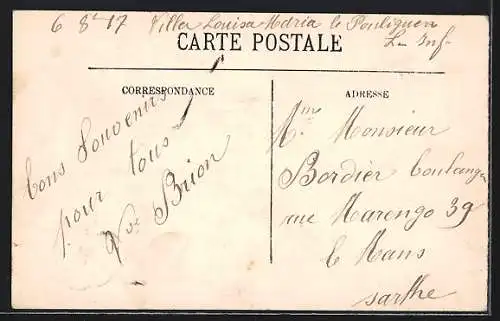 6 8e 17 Villa Louisa Maria le Pouliguen
L. Inf.
CARTE POSTALE
CORRESPONDANCE
Bons Souvenirs
pour tous
Vve Brion
ADRESSE
Monsieur
Bordier boulanger
rue Marengo 39
le Mans
sarthe